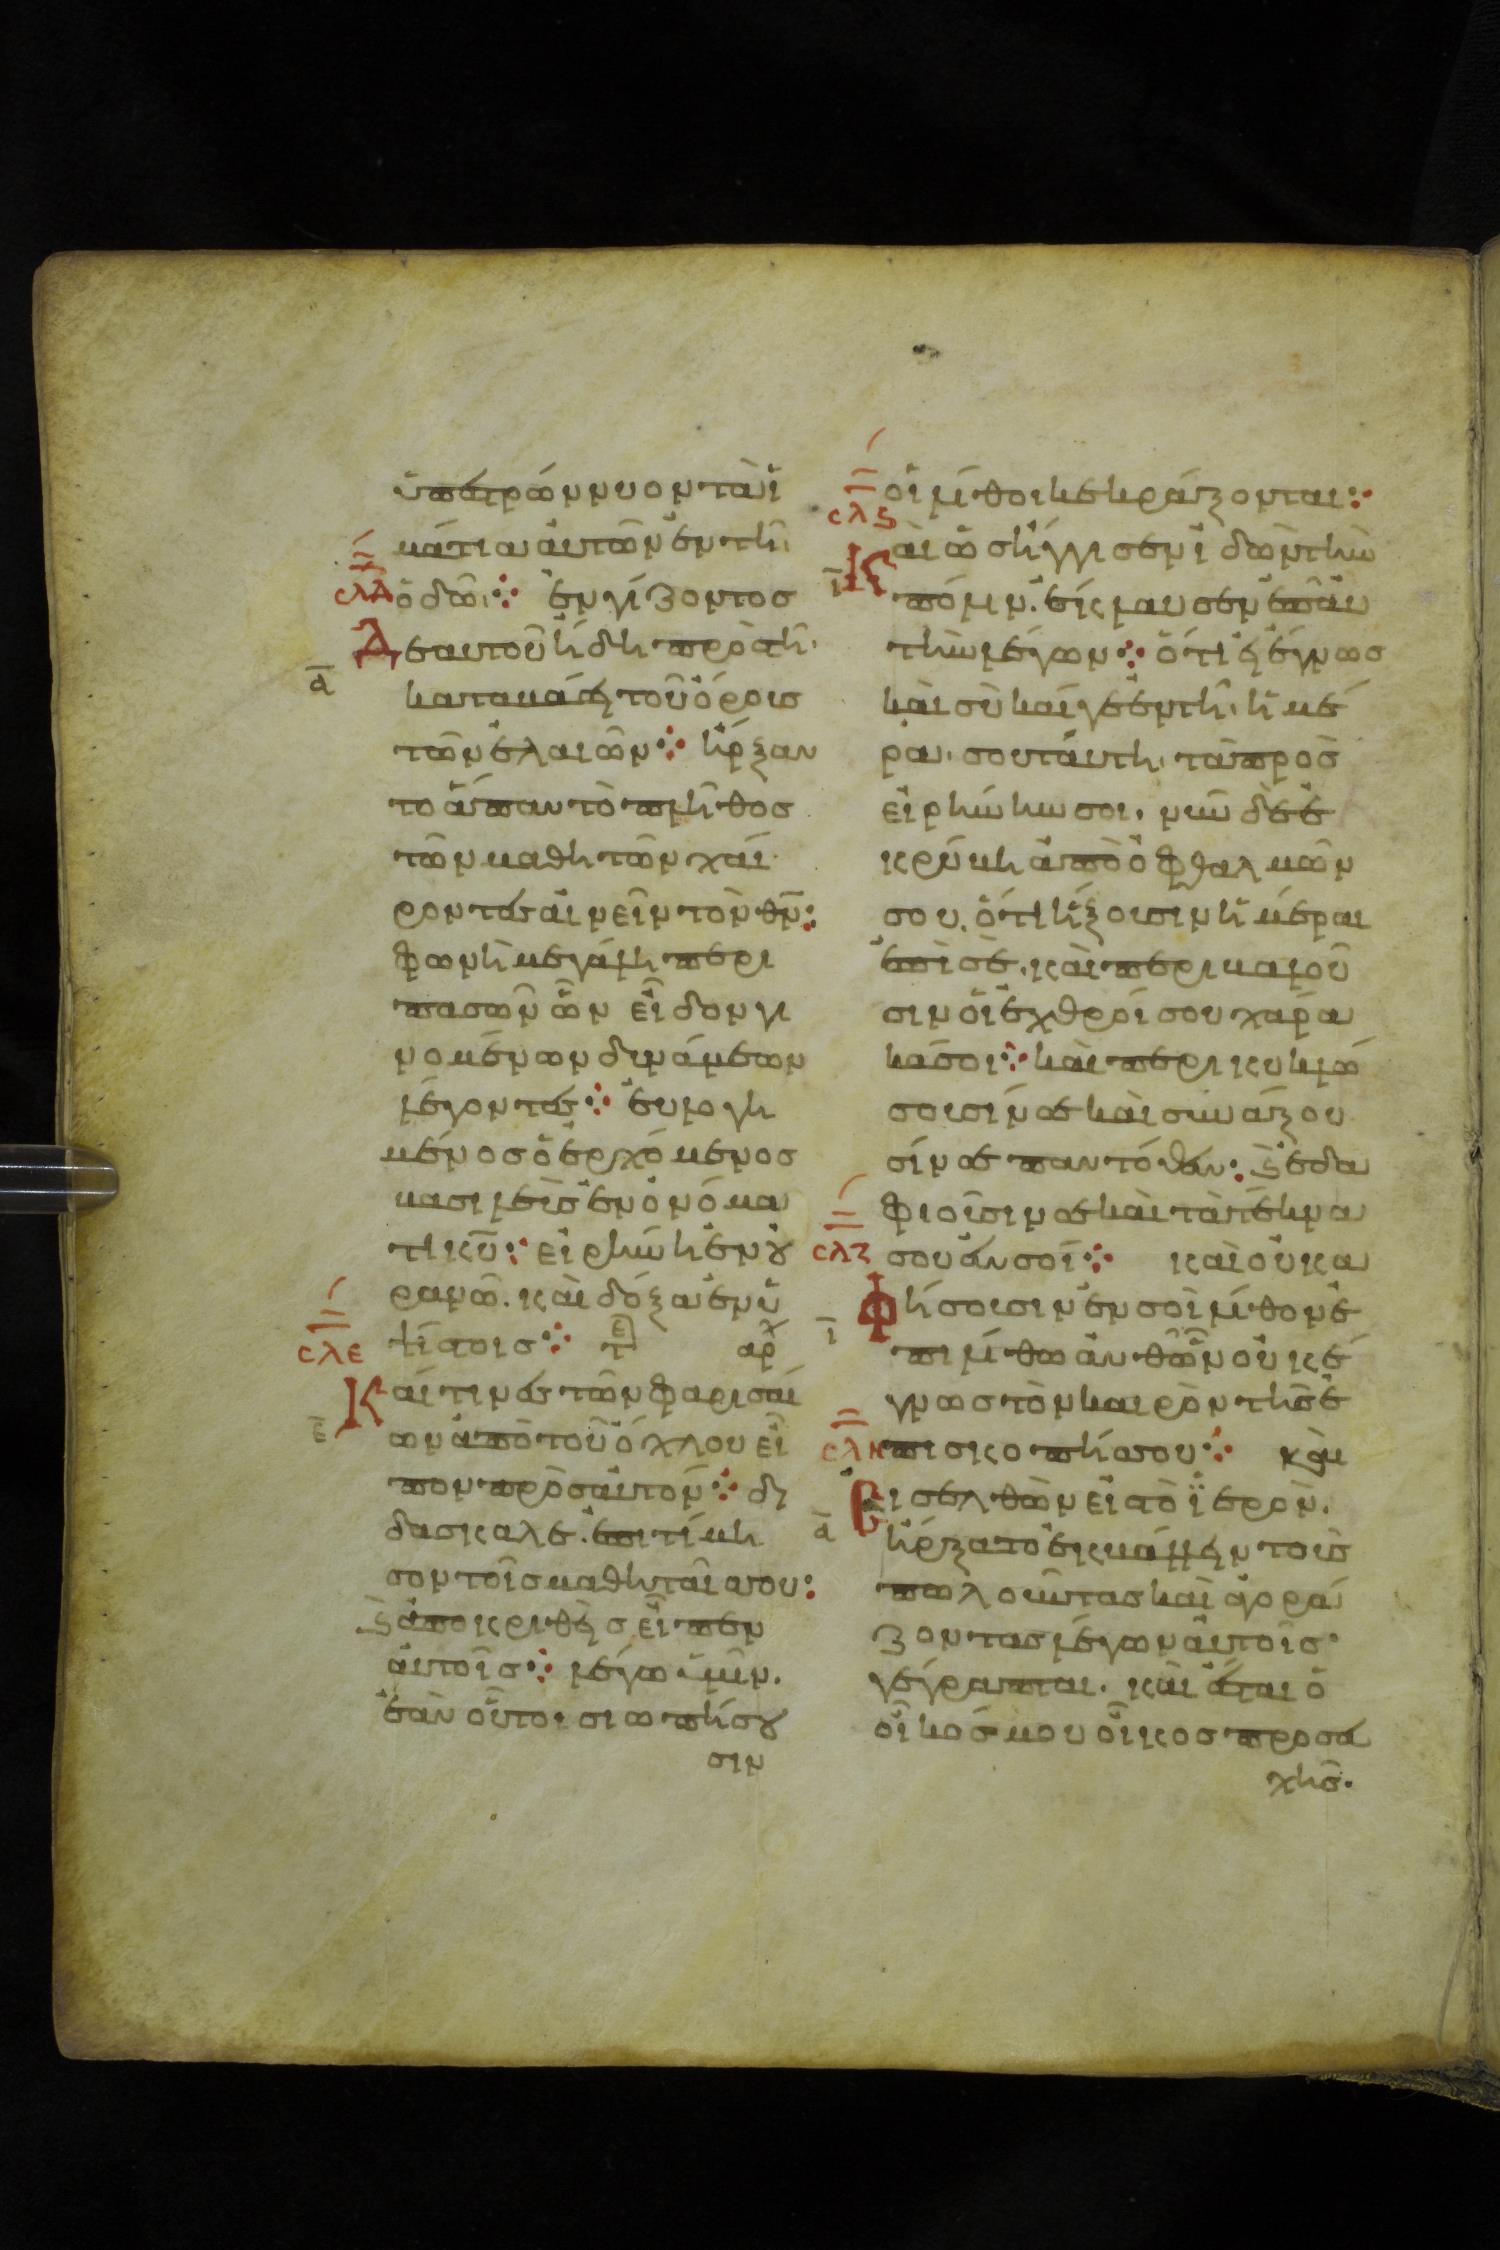 ὑπεστρώννυον τὰ ἱ
μάτια αὐτῶν ἐν τῆι
σλδ
ὁδῶι ἐγγίζοντος
Δε αὐτοῦ ἤδη πρὸς τῆι
α
καταβάσει τοῦ ὄρους
τῶν ἐλαιῶν ἤρξαν
το ἅπαν τὸ πλῆθος
τῶν μαθητῶν χαί
ροντες αἰνεῖν τὸν θν
φωνῆ μεγάλη περι
πασῶν ὧν εἶδον γι
νομένων δυνάμεων
λέγοντες εὐλογη
μένος ὁ ἐρχόμενος
βασιλεὺς ἐν ὀνόμα
τι κυ εἰρήνη ἐν οὐ
ρανῶ. καὶ δόξα ἐν ὑ
σλε
ψίστοις τε αρχ
Και τινὲς τῶν φαρισαί
ε
ων ἀπὸ τοῦ ὄχλου εἶ
πον πρὸς αὐτόν δι
δάσκαλε. ἐπιτίμη
σον τοῖς μαθηταῖς σου
καὶ ἀποκριθεὶς εἶπεν
αὐτοῖς λέγω ὑμῖν.
ἐὰν οὗτοι σιωπήσου
σιν
οἱ λίθοι κεκράξονται
σλς
Και ὡς ἤγγισεν ἰδὼν τὴν
ι
πόλιν. ἔκλαυσεν ἐπ αυ
τὴν λέγων ὅτι εἰ ἔγνως
καὶ σὺ καί γε ἐν τῆι ἡμέ
ραι σου ταύτηι τὰ πρὸς
εἰρήνην σοι. νῦν δὲ ἐ
κρύβη ἀπὸ ὀφθαλμῶν
σου. ὅτι ἥξουσιν ἡμέραι
ἐπὶ σὲ. καὶ περιβαλοῦ
σιν οἱ ἐχθροί σου χάρα
κά σοι καὶ περικυκλώ
σουσίν σε καὶ συνάξου
σίν σε παντόθεν καὶ ἐδα
φιοῦσιν σε καὶ τὰ τέκνα
σλζ
σου ἐν σοί καὶ οὐκ α
Φήσουσιν ἐν σοὶ λίθον ἐ
ι
πι λίθω ἀνθ ὧν οὐκ ἔ
γνως τὸν καιρὸν τῆς ἐ
σλη
πισκοπῆς σου καὶ
Εισελθὼν εἰς τὸ ἱερὸν.
α
ἤρξατο ἐκβάλλειν τοὺς
πωλοῦντας καὶ ἀγορά
ζοντας λέγων αὐτοῖς
γέγραπται. καὶ ἔσται ὁ
οἶκός μου οἶκος προσευ
χῆς.